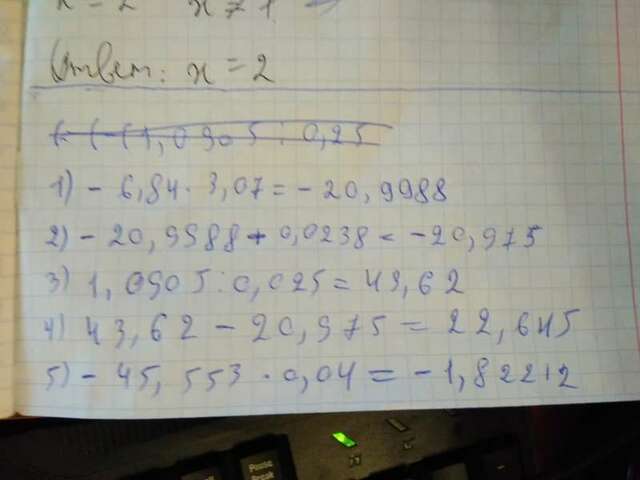 x = 2 x ≠ 1
Ответ: x = 2
(-(-(1,0905 : 0,25
1) - 6,84 · 3,07 = - 20,9988
2) - 20,9988 + 0,0238 = -20,975
3) 1,0905 : 0,025 = 43,62
4) 43,62 - 20,975 = 22,645
5) - 45,553 · 0,04 = - 1,82212
Pause
Break